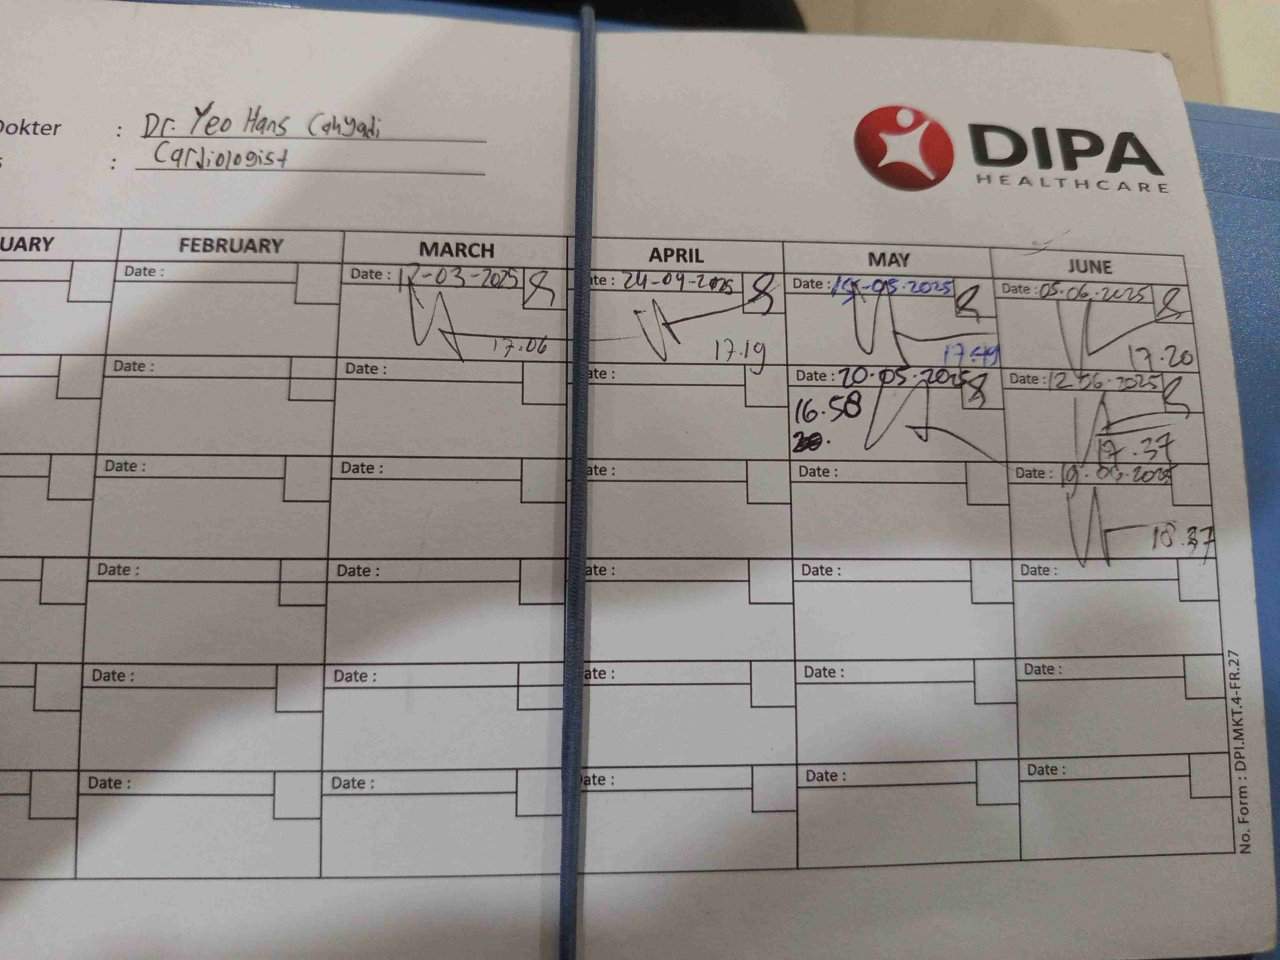 Dokter : Dr. Yeo Hans Cahyadi
: Cardiologist
DIPA
HEALTHCARE
UARY FEBRUARY MARCH APRIL MAY JUNE
Date : Date : -03-2025 ate : 24-04-2025 Date : -05-2025 Date : 05.06.2025
17.06 17.19 17.49 17.20
Date : Date : ate : Date : 20.05.2025 Date : 12.06.2025
16.58 17.37
Date : Date : ate : Date : Date : 19.06.2025
18.37
Date : Date : ate : Date : Date :
Date : Date : ate : Date : Date :
Date : Date : ate : Date : Date :
No. Form : DPI.MKT.4-FR.27